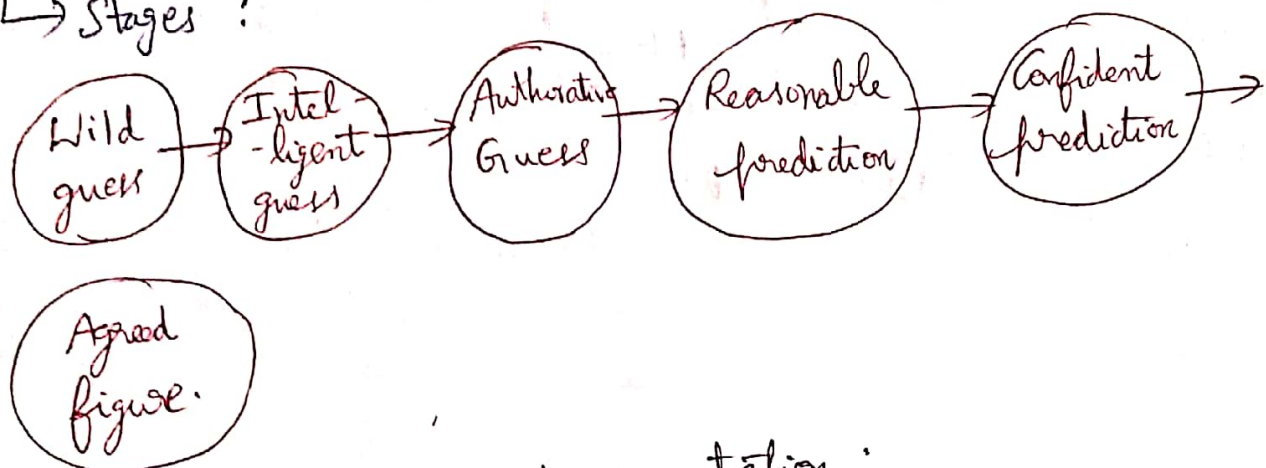 ↳ Stages :
Wild
guess
Intel -
- ligent
guess
Authorative
Guess
Reasonable
prediction
Confident
prediction
Agreed
figure.